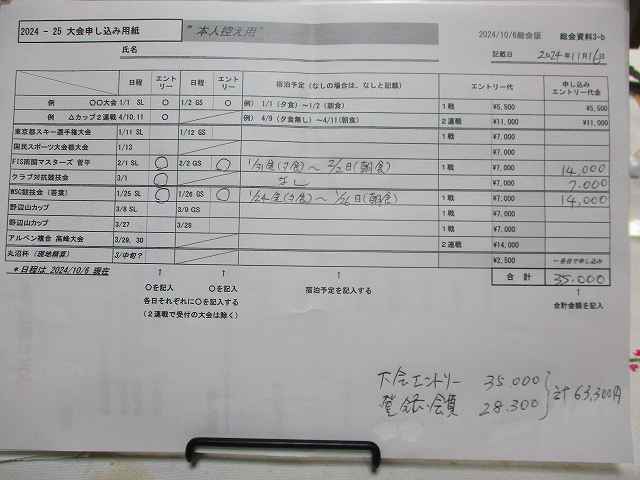 2024 - 25 大会申し込み用紙 "本人控え用" 2024/10/6総会版 総会資料3-b
氏名 記載日 2024年11月16日
日程 エントリー 日程 エントリー 宿泊予定 (なしの場合は、なしと記載) エントリー代 申し込みエントリー代金
例 〇〇大会 1/1 SL ○ 1/2 GS ○ 例) 1/1(夕食)~1/2(朝食) 1戦 ¥5,500 ¥5,500
例 △カップ2連戦 4/10,11 ○ 例) 4/9(夕食無し)~4/11(朝食) 2連戦 ¥11,000 ¥11,000
東京都スキー選手権大会 1/11 SL 1/12 GS 1戦 ¥7,000
国民スポーツ大会都大会 1/13 1戦 ¥7,000
FIS南関マスターズ 菅平 2/1 SL ○ 2/2 GS ○ 1/31金(夕食)~2/2日(朝食) 1戦 ¥7,000 14,000
クラブ対抗競技会 3/1 ○ なし ¥7,000 7,000
WSC競技会 (若葉) 1/25 SL ○ 1/26 GS ○ 1/24金(夕食)~1/26日(朝食) 1戦 ¥7,000 14,000
野辺山カップ 3/8 SL 3/9 GS 1戦 ¥7,000
野辺山カップ 3/27 3/28 1戦 ¥7,000
アルペン複合 高峰大会 3/29, 30 2連戦 ¥14,000
丸沼杯 (現地精算) 3/中旬? ¥2,500 ←各自で申し込み
*日程は 2024/10/6 現在 合計 35,000
↑ ↑ ↑ ↑
○を記入 ○を記入 宿泊予定を記入する 合計金額を記入
各日それぞれに○を記入する
(2連戦で受付の大会は除く)
大会エントリー 35,000
登録・会費 28,300
計 63,300円